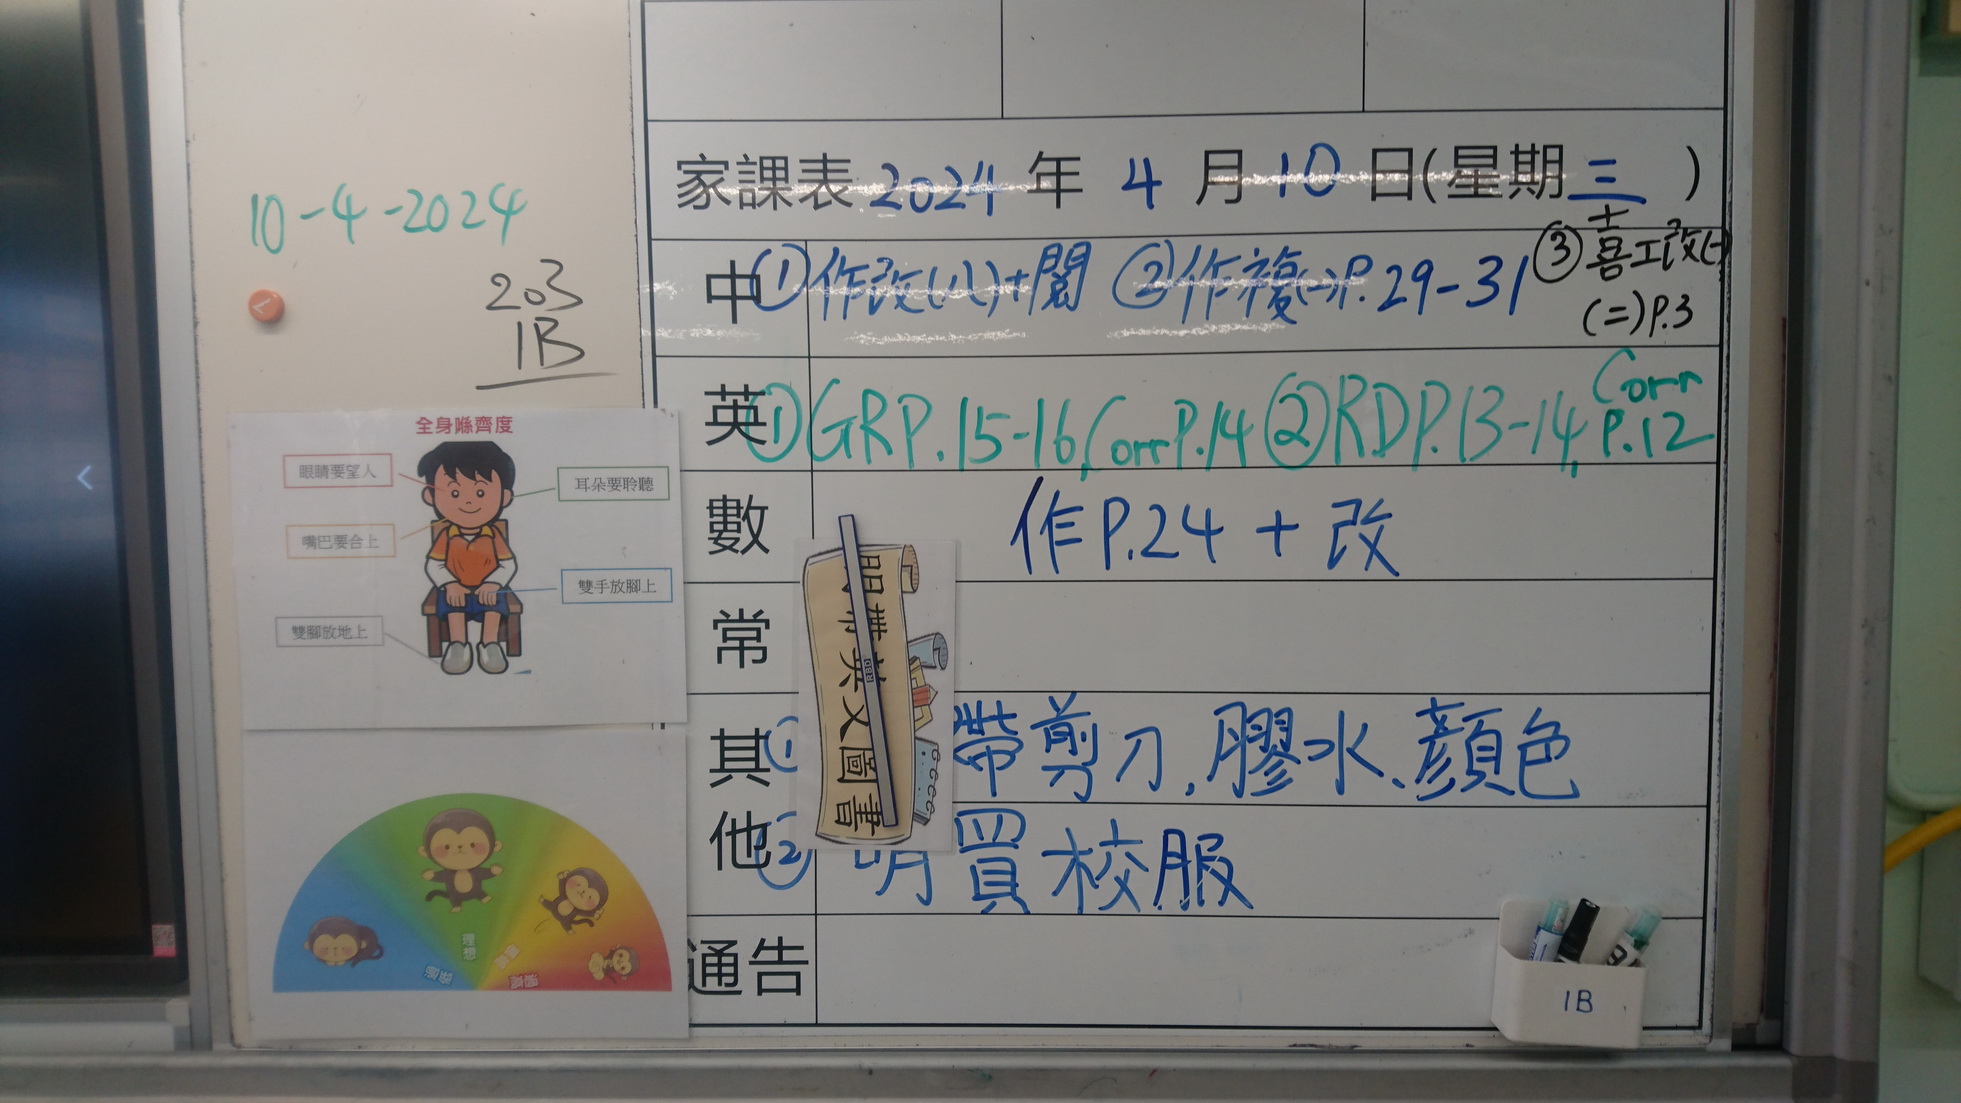 10-4-2024
203
1B
全身喺齊度
眼睛要望人
耳朵要聆聽
嘴巴要合上
雙手放腳上
雙腳放地上
理想
家課表 2024 年 4 月 10 日(星期三)
中 ①作改(八)+閱 ②作複(一)P.29-31 ③喜工改(一)
(二)P.3
英 ①GRP.15-16,Corr P.14 ②RDP.13-14, Corr P.12
數 作P.24 + 改
常
明帶英文圖書
其他 ① 帶剪刀,膠水、顏色
② 明買校服
通告
1B